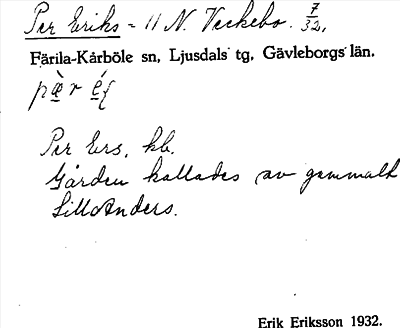 Per Eriks = 11 N. Veckebo. 7/32.
Färila-Kårböle sn, Ljusdals tg, Gävleborgs län.
Per Ers, kb.
Gården kallades av gammalt
LillAnders.
Erik Eriksson 1932.